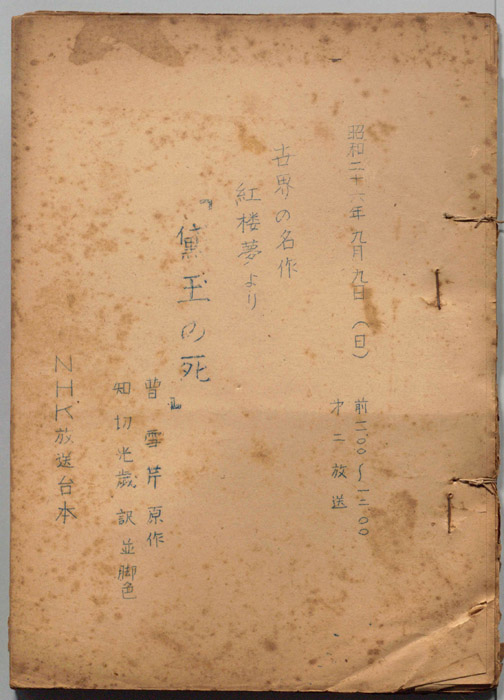 昭和二十一年九月九日(日)
前一一.00〜一二.00
才二放送
世界の名作
紅楼夢より
『黛玉の死』
曹雪芹原作
知切光歳 訳並脚色
NHK放送台本